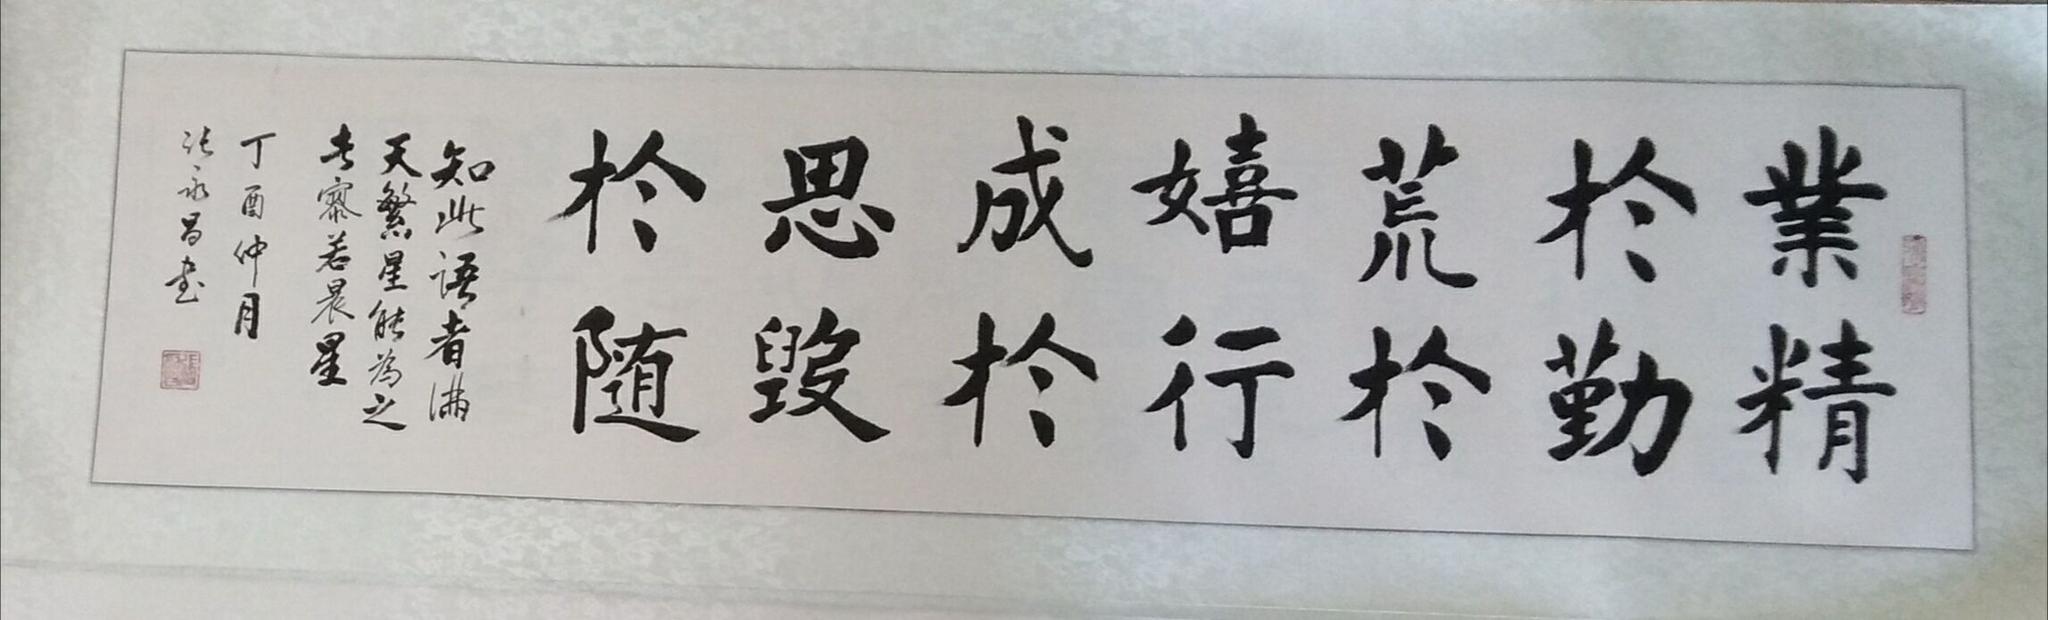 業精
於勤
荒於
嬉行
成於
思毀
於随
知此语者满
天繁星能为之
者寥若晨星
丁酉仲月
张永昌书